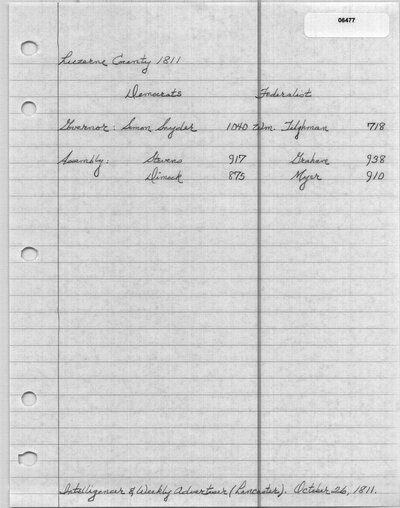 06477
Luzerne County 1811
Democrats Federalist
Governor: Simon Snyder 1040 Wm. Tilghman 718
Assembly: Stevens 917 Graham 938
Dimock 875 Myer 910
Intelligencer & Weekly Advertiser (Lancaster). October 26, 1811.